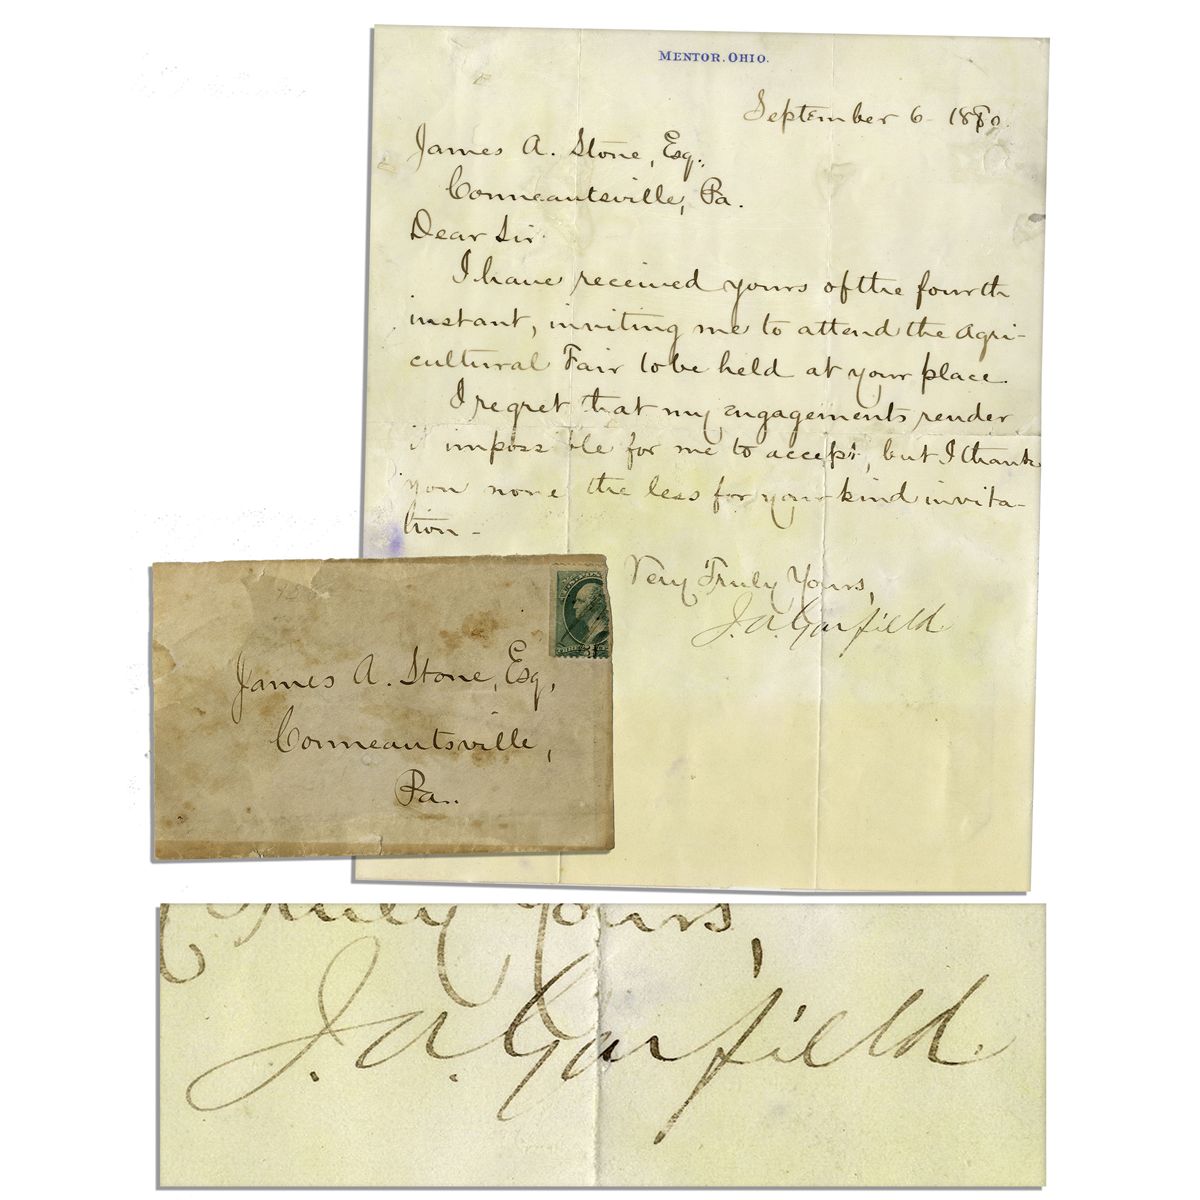 MENTOR, OHIO.
September 6 - 1880.
James A. Stone, Esq.,
Conneautsville, Pa.
Dear Sir.
I have received yours of the fourth
instant, inviting me to attend the Agri-
cultural Fair to be held at your place.
I regret that my engagements render
it impossible for me to accept, but I thank
you none the less for your kind invita-
tion -
Very Truly Yours,
J. A. Garfield.
James A. Stone, Esq,
Conneautsville,
Pa.
Truly Yours,
J. A. Garfield.